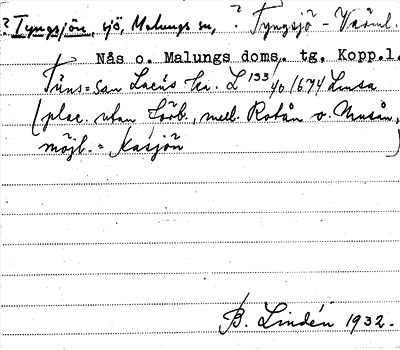 ? Tyngsjön, sjö, Malungs sn, ? Tyngsjö - Värml.
Nås o. Malungs doms. tg. Kopp.l.
Lacus L 133 40/1674 Limsa
(plac. utan förb., mell. Rotån o. Musån,
möjl. = Kasjön)
B. Lindén 1932.